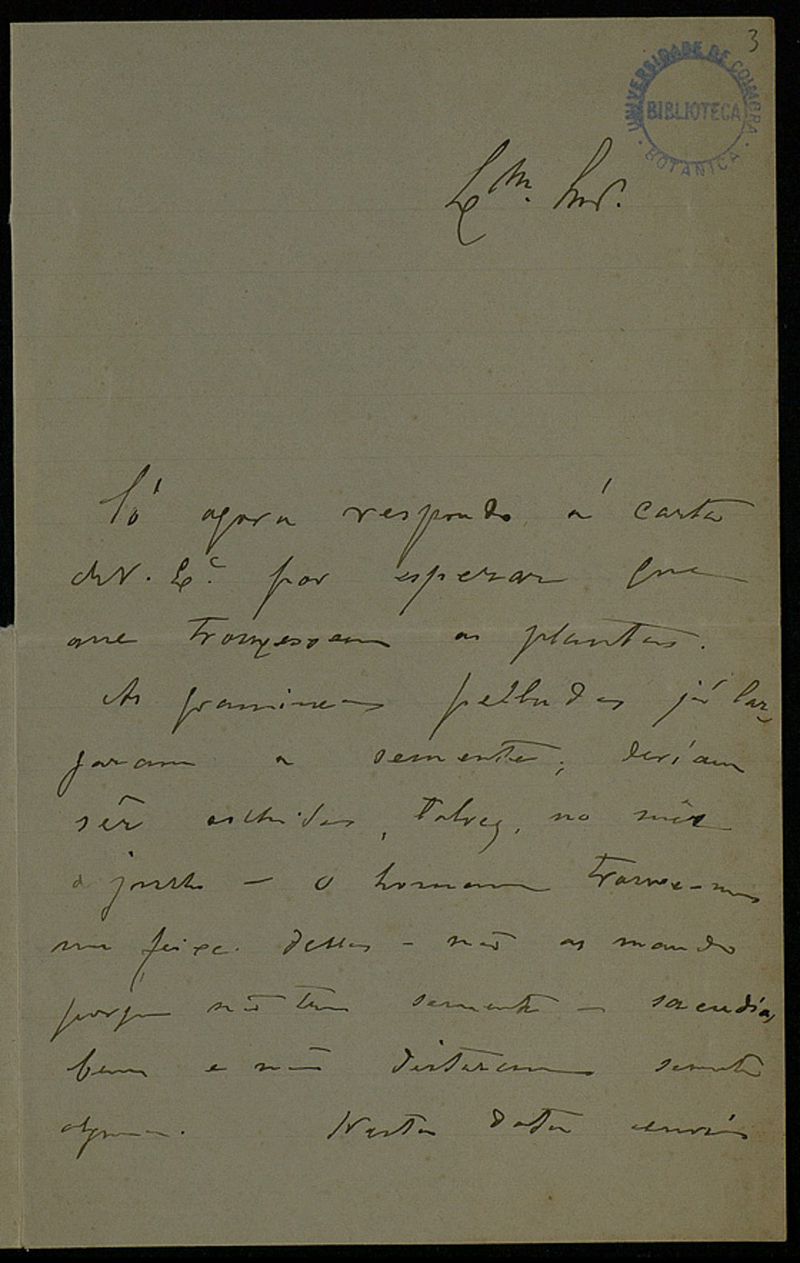 3
UNIVERSIDADE DE COIMBRA
BIBLIOTECA
BOTANICA
Exm. Snr.
Só agora respondo á carta
de V. Exª. por esperar que
me trouxessem as plantas.
As gramineas pelludas já lar-
garam a semente; deviam
sêr colhidas, talvez, no mês
de junho — O homem trouxe-me
um feixe dellas — não as mando
porque não tem semente — sacudi-as
bem e não deitaram semente
alguma. Nesta data envio